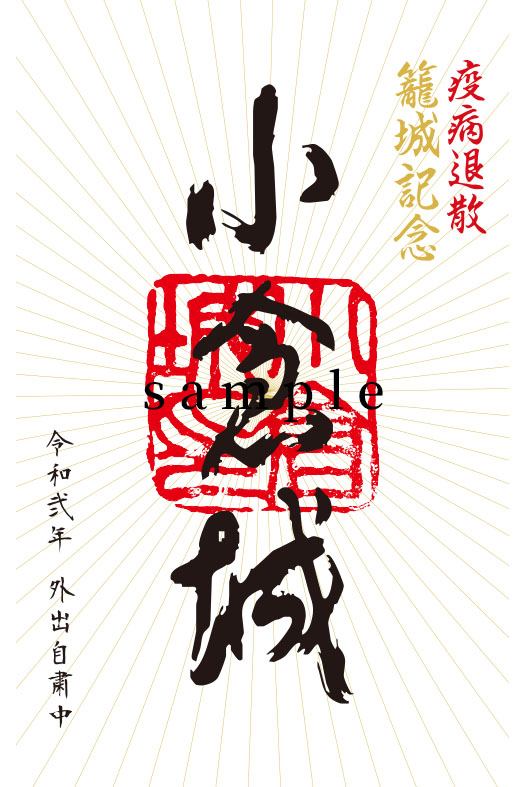 疫病退散
籠城記念
小倉城
sample
令和弐年 外出自粛中